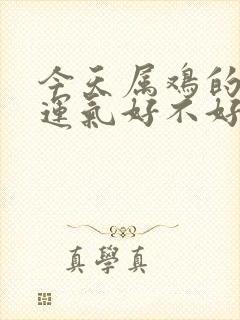 今天属鸡的
運氣好不好
真學真